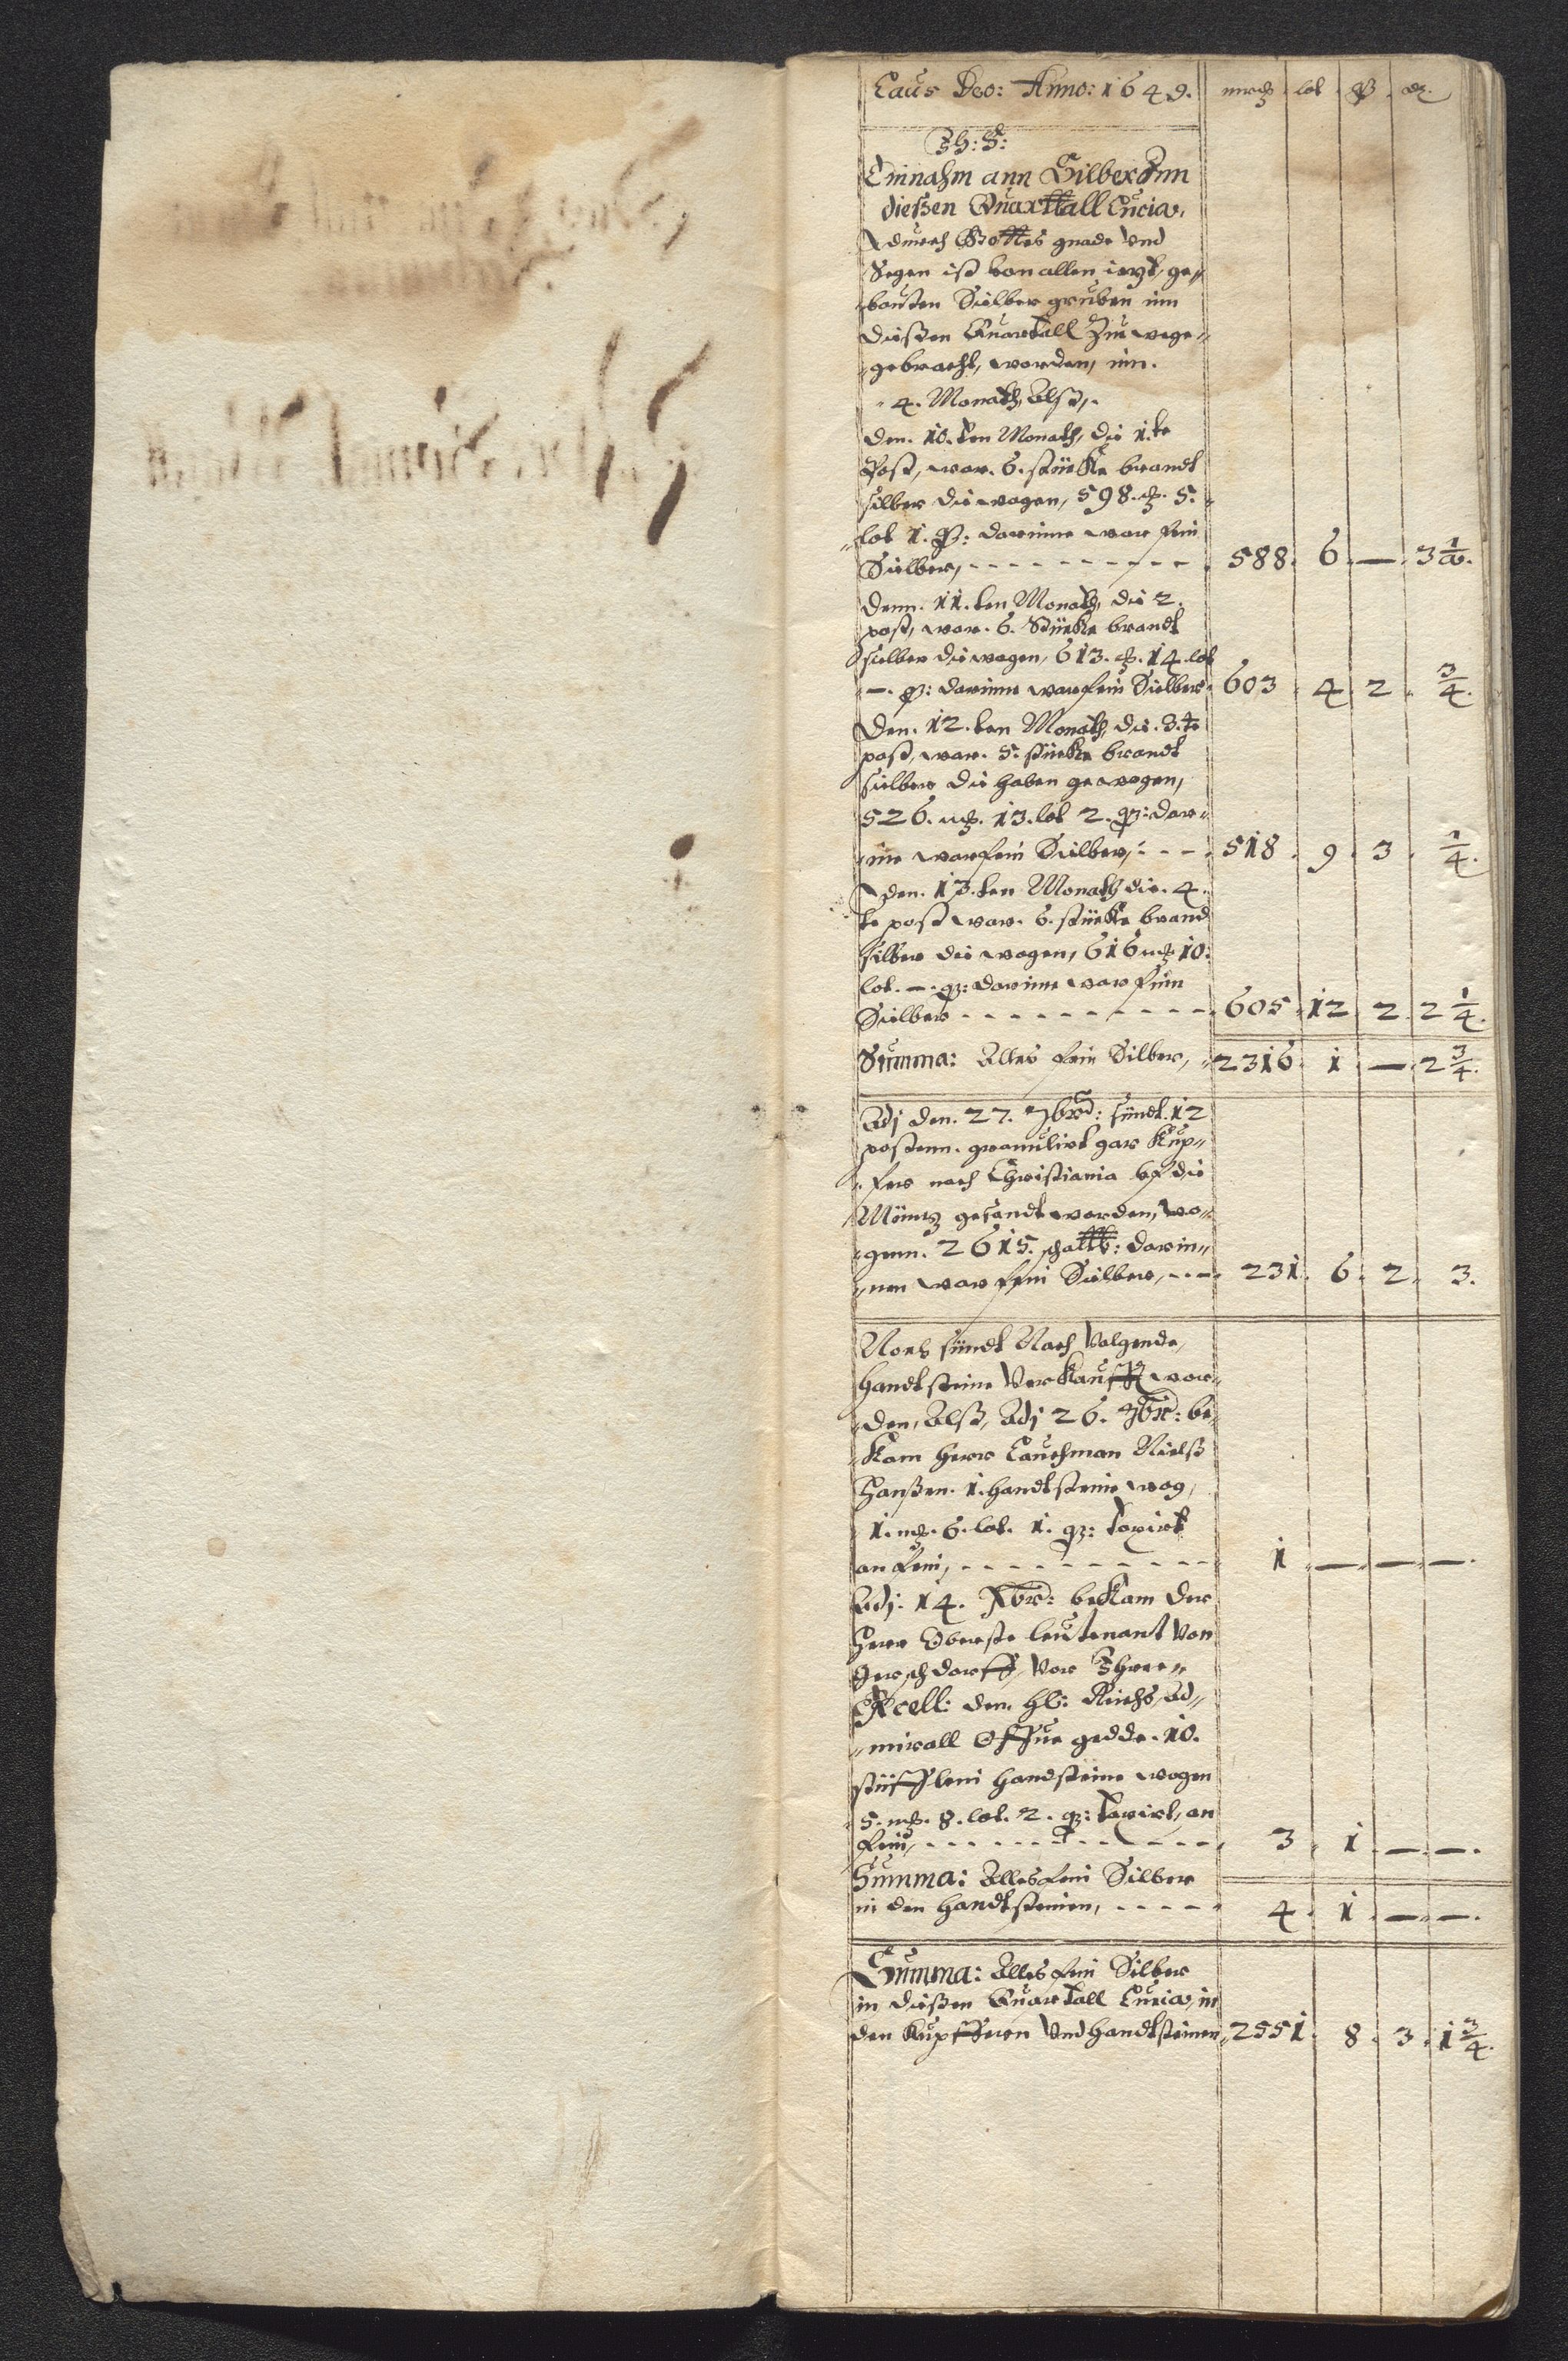 Laus Deo: Anno: 1649. march lot q dz.
Einnahm ann Silber Inn
dießen Quarttall Lucia,
durch Gottes gnade Vnd
Segen ist von allen ietzt, ge„
bauten Süelber gruben inn
dießen Quartall Zu wege„
„gebracht, worden, inn.
„4. Monath, Alß,
den. 10. ten Monath, die 1. te
Post, war. 6. stücke brandt
silber die wogen, 598. 5.
„lot 1. q: darinne war fein
Süelber, - - - 588. 6. — . 3 1/4.
Denn. 11. ten Monath, die 2.
post, war. 6. Stücke brandt
silber die wogen, 613. 14. lot
—. q: darinne war fein Süelber 603. 4. 2. 3/4.
Den. 12. ten Monath, die. 3. te
post, war. 5. stücke brandt
süelber die haben gewogen,
526. 13. lot 2. q: dar„
inne war fein Süelber, - - - 518. 9. 3. 1/4.
den. 13. ten Monath die. 4.
te post war. 6. stücke brand
silber die wogen, 616 10:
lot. —. q: darinne war fein
Süelber - - - 605. 12. 2. 2 1/4.
Summa: Alles fein Silber, 2316. 1. — . 2 3/4.
Adj den. 27. 7br: sündt. 12
postenn. granulirt gar Kup„
„fer nach Christiania vf die
Müntz gesandt worden, wo„
„genn. 2615. schaltt: darin„
„nen war fein Süelber, - - - 231. 6. 2. 3.
Noch sündt Nach Volgende,
handtsteine Verkaufft wor„
„den, Alß, Adj 26. 7br: be„
kam herr Lauchman Nielß
Hanßen. 1. handtstein wog,
1. 6. lot. 1. q: taxirt
an fein, - - - 1. — . — . — .
Adj. 14. Xbr: bekam der
Herr Oberste leutenant Von
Gerschdorff, Vor Ihre„
Excell: den. Hl: Reichs, Ad„
„mirall Offue gedde. 10.
stüfflein handsteine wogen
5. 8. lot. 2. q: taxirt, an
fein, - - - 3. 1. — . — .
Summa: Alles fein Silber
in den handtsteinen, - - - 4. 1. — . — .
Summa: Alles fein Silber
in dießen Quartall Lucia, in
den Kupfferen Vnd handtsteinen 2551. 8. 3. 1 3/4.